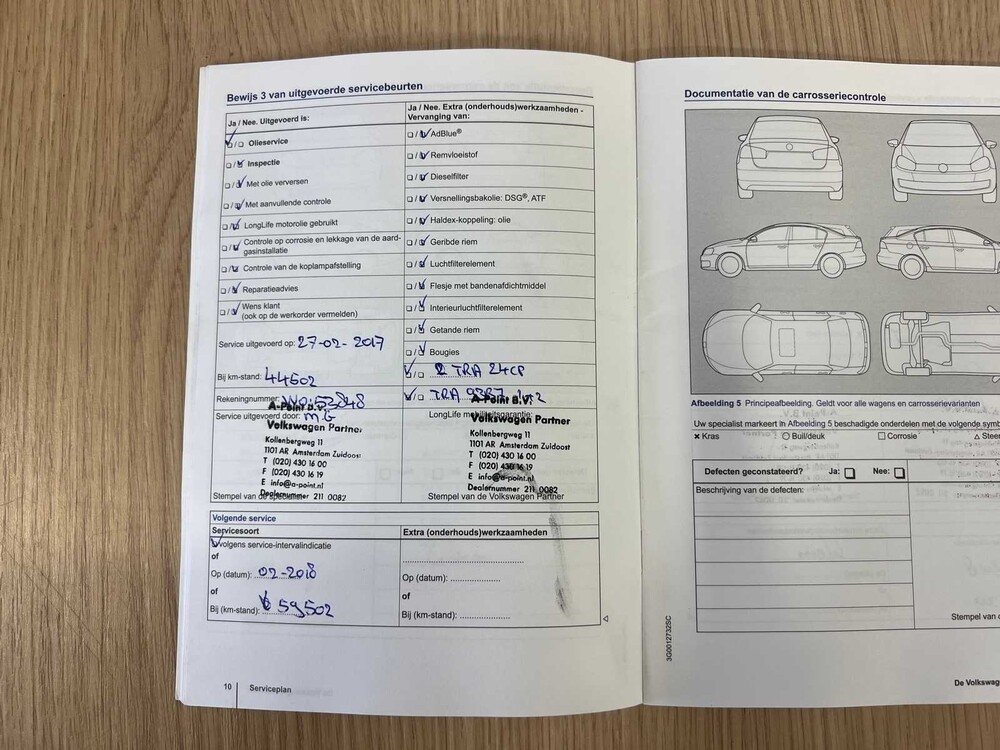 Bewijs 3 van uitgevoerde servicebeurten
Ja / Nee. Uitgevoerd is:
Olieservice
Inspectie
Met olie verversen
Met aanvullende controle
LongLife motorolie gebruikt
Controle op corrosie en lekkage van de aard-
gasinstallatie
Controle van de koplampafstelling
Reparatieadvies
Wens klant
(ook op de werkorder vermelden)
Service uitgevoerd op: 27-02-2017
Bij km-stand: 44502
Rekeningnummer: WO:53848
Service uitgevoerd door: M.G
A-Point B.V.
Volkswagen Partner
Kollenbergweg 11
1101 AR Amsterdam Zuidoost
T (020) 430 16 00
F (020) 430 16 19
E info@a-point.nl
Dealernummer 211 0082
Stempel van de
Ja / Nee. Extra (onderhouds)werkzaamheden -
Vervanging van:
AdBlue®
Remvloeistof
Dieselfilter
Versnellingsbakolie: DSG®, ATF
Haldex-koppeling: olie
Geribde riem
Luchtfilterelement
Flesje met bandenafdichtmiddel
Interieurluchtfilterelement
Getande riem
Bougies
TRA 24CP
TRA
LongLife mobiliteitsgarantie:
A-Point B.V.
Volkswagen Partner
Kollenbergweg 11
1101 AR Amsterdam Zuidoost
T (020) 430 16 00
F (020) 430 16 19
E info@a-point.nl
Dealernummer 211 0082
Stempel van de Volkswagen Partner
Volgende service
Servicesoort
volgens service-intervalindicatie
of
Op (datum): 02-2018
of
Bij (km-stand): 59502
Extra (onderhouds)werkzaamheden
Op (datum):
of
Bij (km-stand):
10 Serviceplan
Documentatie van de carrosseriecontrole
Afbeelding 5 Principeafbeelding. Geldt voor alle wagens en carrosserievarianten
Uw specialist markeert in Afbeelding 5 beschadigde onderdelen met de volgende
Kras Buil/deuk Corrosie
Defecten geconstateerd? Ja: Nee:
Beschrijving van de defecten:
Stempel van
3G0012732SC
De